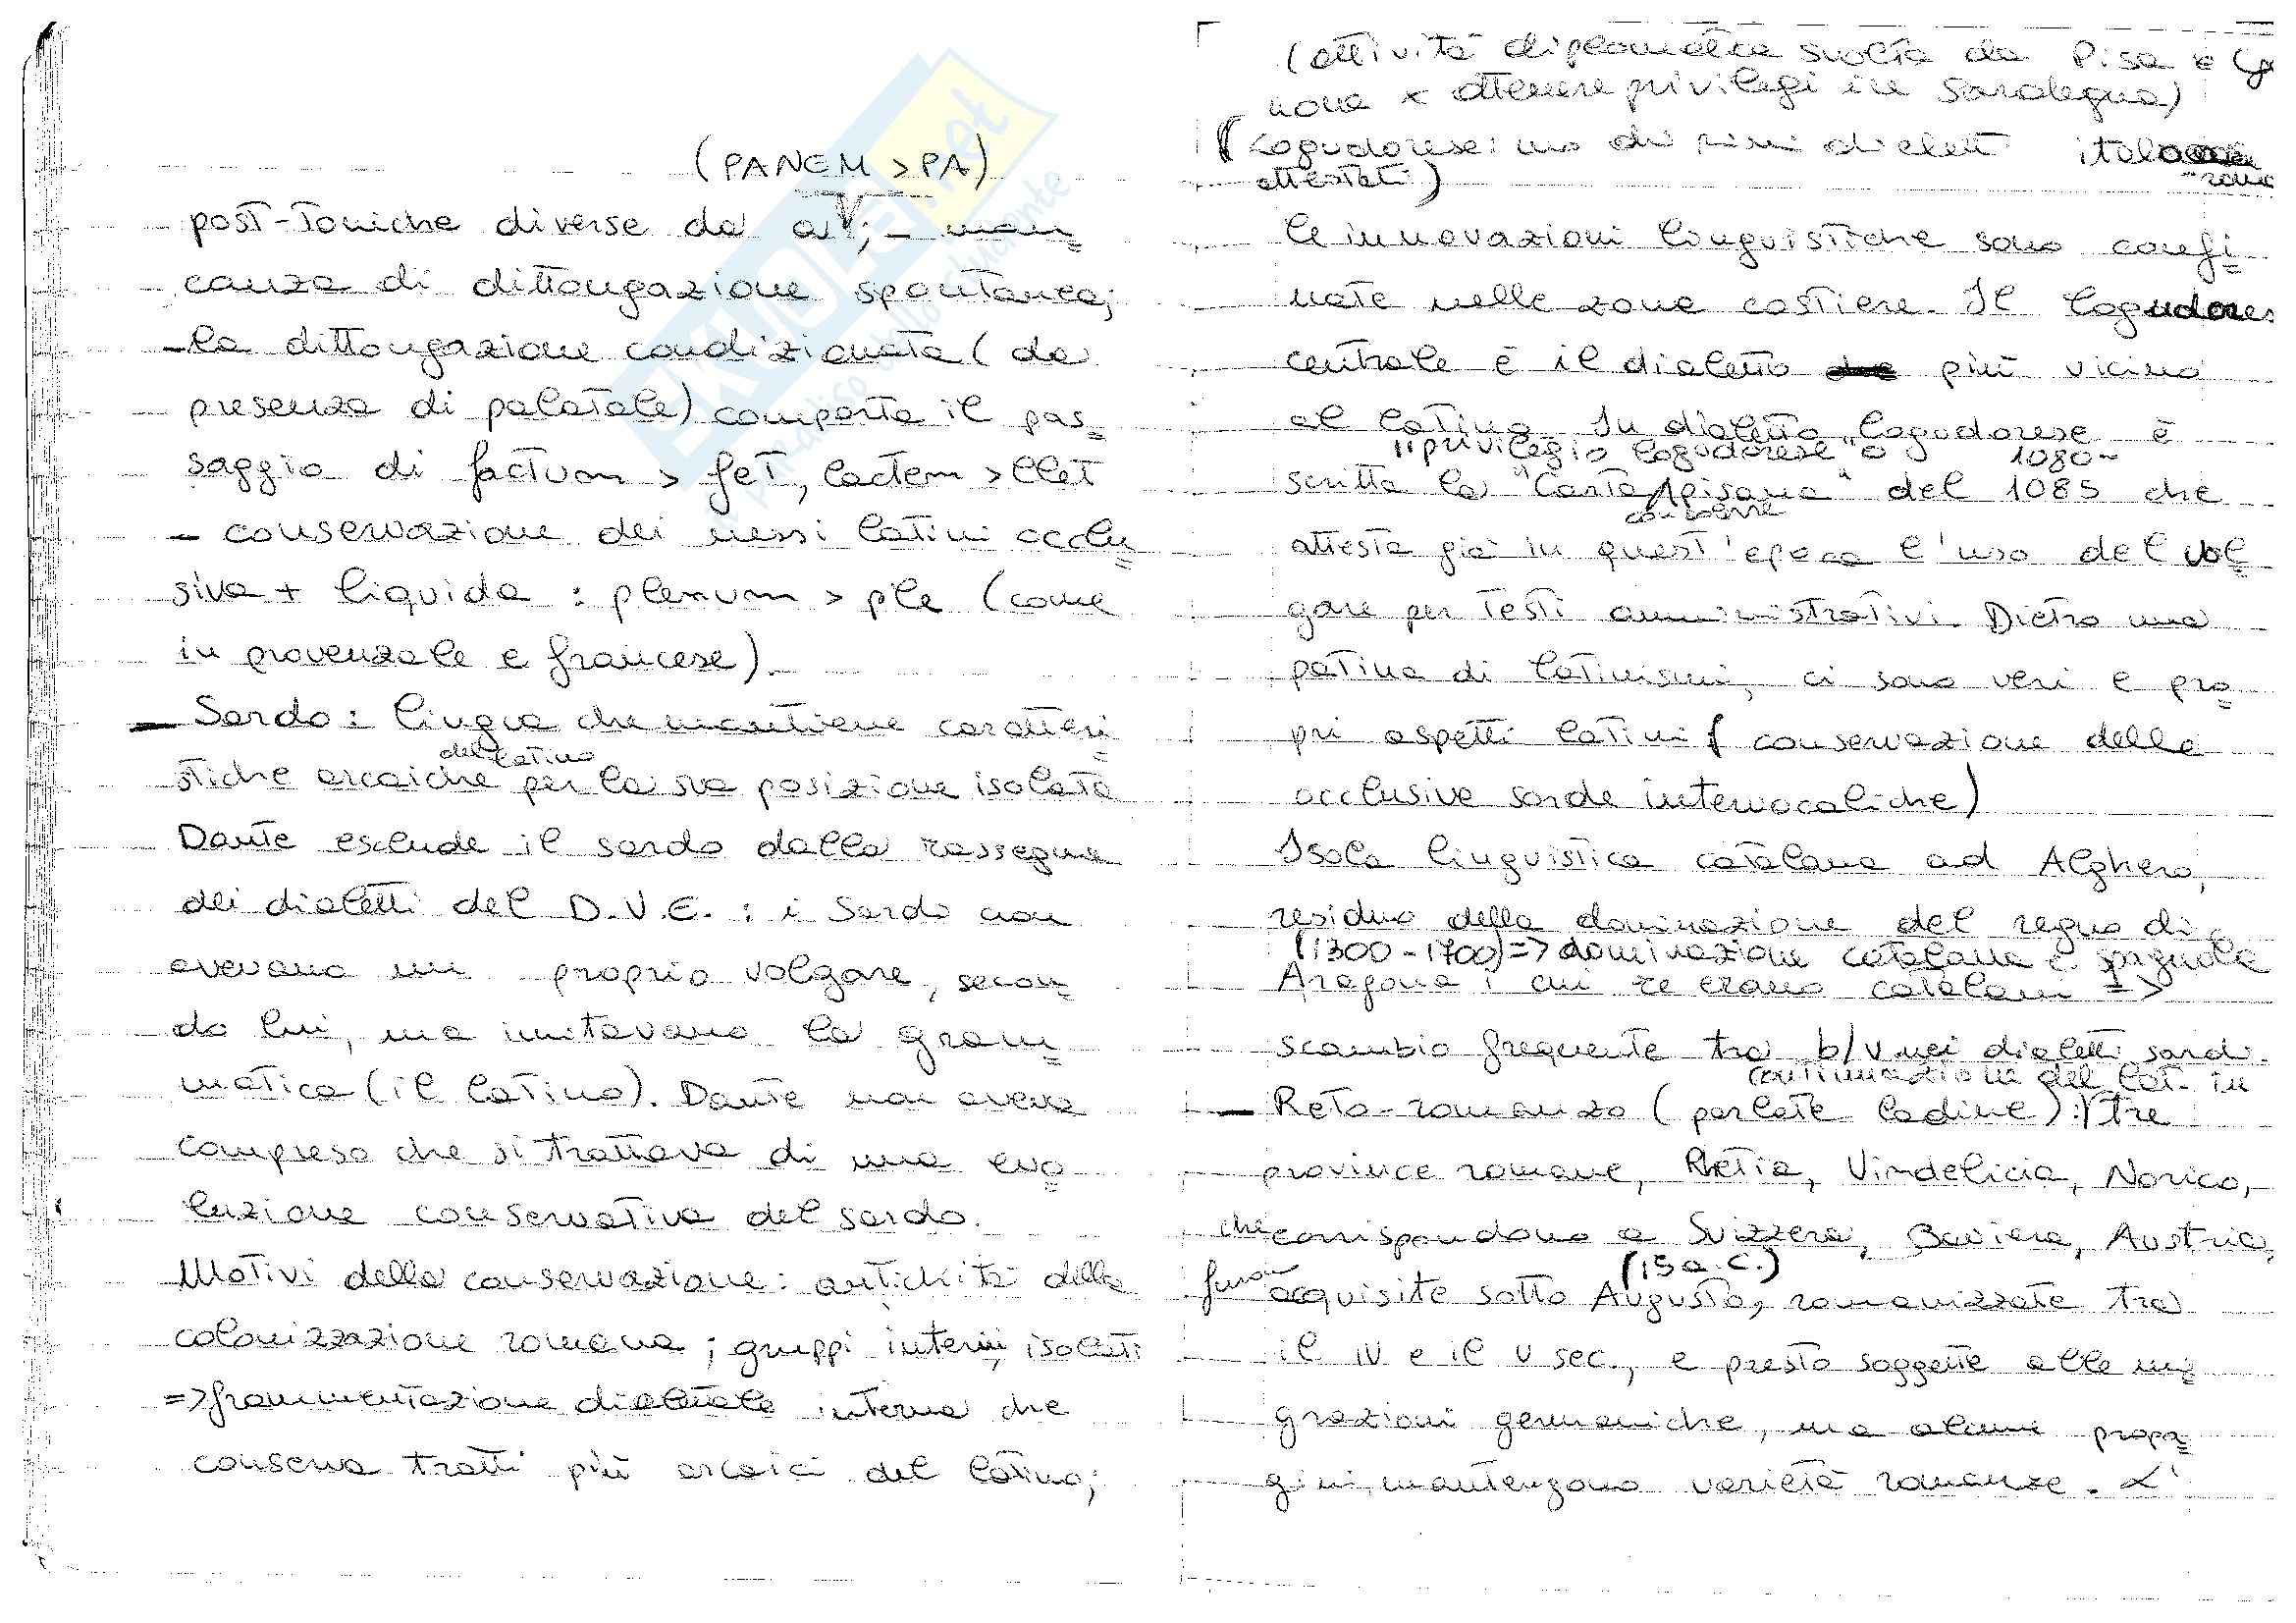 (PANEM > PA)
post-toniche diverse da a; - man=
canza di dittongazione spontanea;
- la dittongazione condizionata (da
presenza di palatale) comporta il pas=
saggio di factum > fet, lactem > llet
- conservazione dei nessi latini occlu=
siva + liquida : plenum > ple (come
in provenzale e francese).
- Sardo : lingua che mantiene caratteri=
del latino
stiche arcaiche per la sua posizione isolata
Dante esclude il sardo dalla rassegna
dei dialetti del D.V.E. : i Sardi non
avevano un proprio volgare, secon=
do lui, ma imitavano la gram=
matica (il latino). Dante non aveva
compreso che si trattava di una evo=
luzione conservativa del sardo.
Motivi della conservazione : antichità della
colonizzazione romana ; gruppi interni isolati
=> frammentazione dialettale interna che
conserva tratti più arcaici del latino;
(attività diplomatica svolta da Pisa e Ge
nova x ottenere privilegi in Sardegna)
(Logudorese: uno dei primi dialetti italo
-roma
attestati)
le innovazioni linguistiche sono confi=
nate nelle zone costiere. Il logudores
centrale è il dialetto più vicino
al latino. In dialetto logudorese è
"privilegio logudorese" o 1080-
scritta la "Carta pisana" del 1085 che
attesta già in quest'epoca l'uso del vol=
gare per testi amministrativi. Dietro una
patina di latinismi, ci sono veri e pro=
pri aspetti latini (conservazione delle
occlusive sorde intervocaliche)
Isola linguistica catalana ad Alghero,
residuo della dominazione del regno di
(1300-1700) => dominazione catalana e spagnola
Aragona i cui re erano catalani =>
scambio frequente tra b/v nei dialetti sardi.
continuazioni del lat. in
- Reto-romanzo (parlate ladine) : tre
province romane, Rhetia, Vindelicia, Norico,
che corrispondono a Svizzera, Baviera, Austria,
(15 a.C.)
furon acquisite sotto Augusto, romanizzate tra
il IV e il V sec., e presto soggette alle mi=
grazioni germaniche, ma alcune propa=
gini mantengono varietà romanze. L'